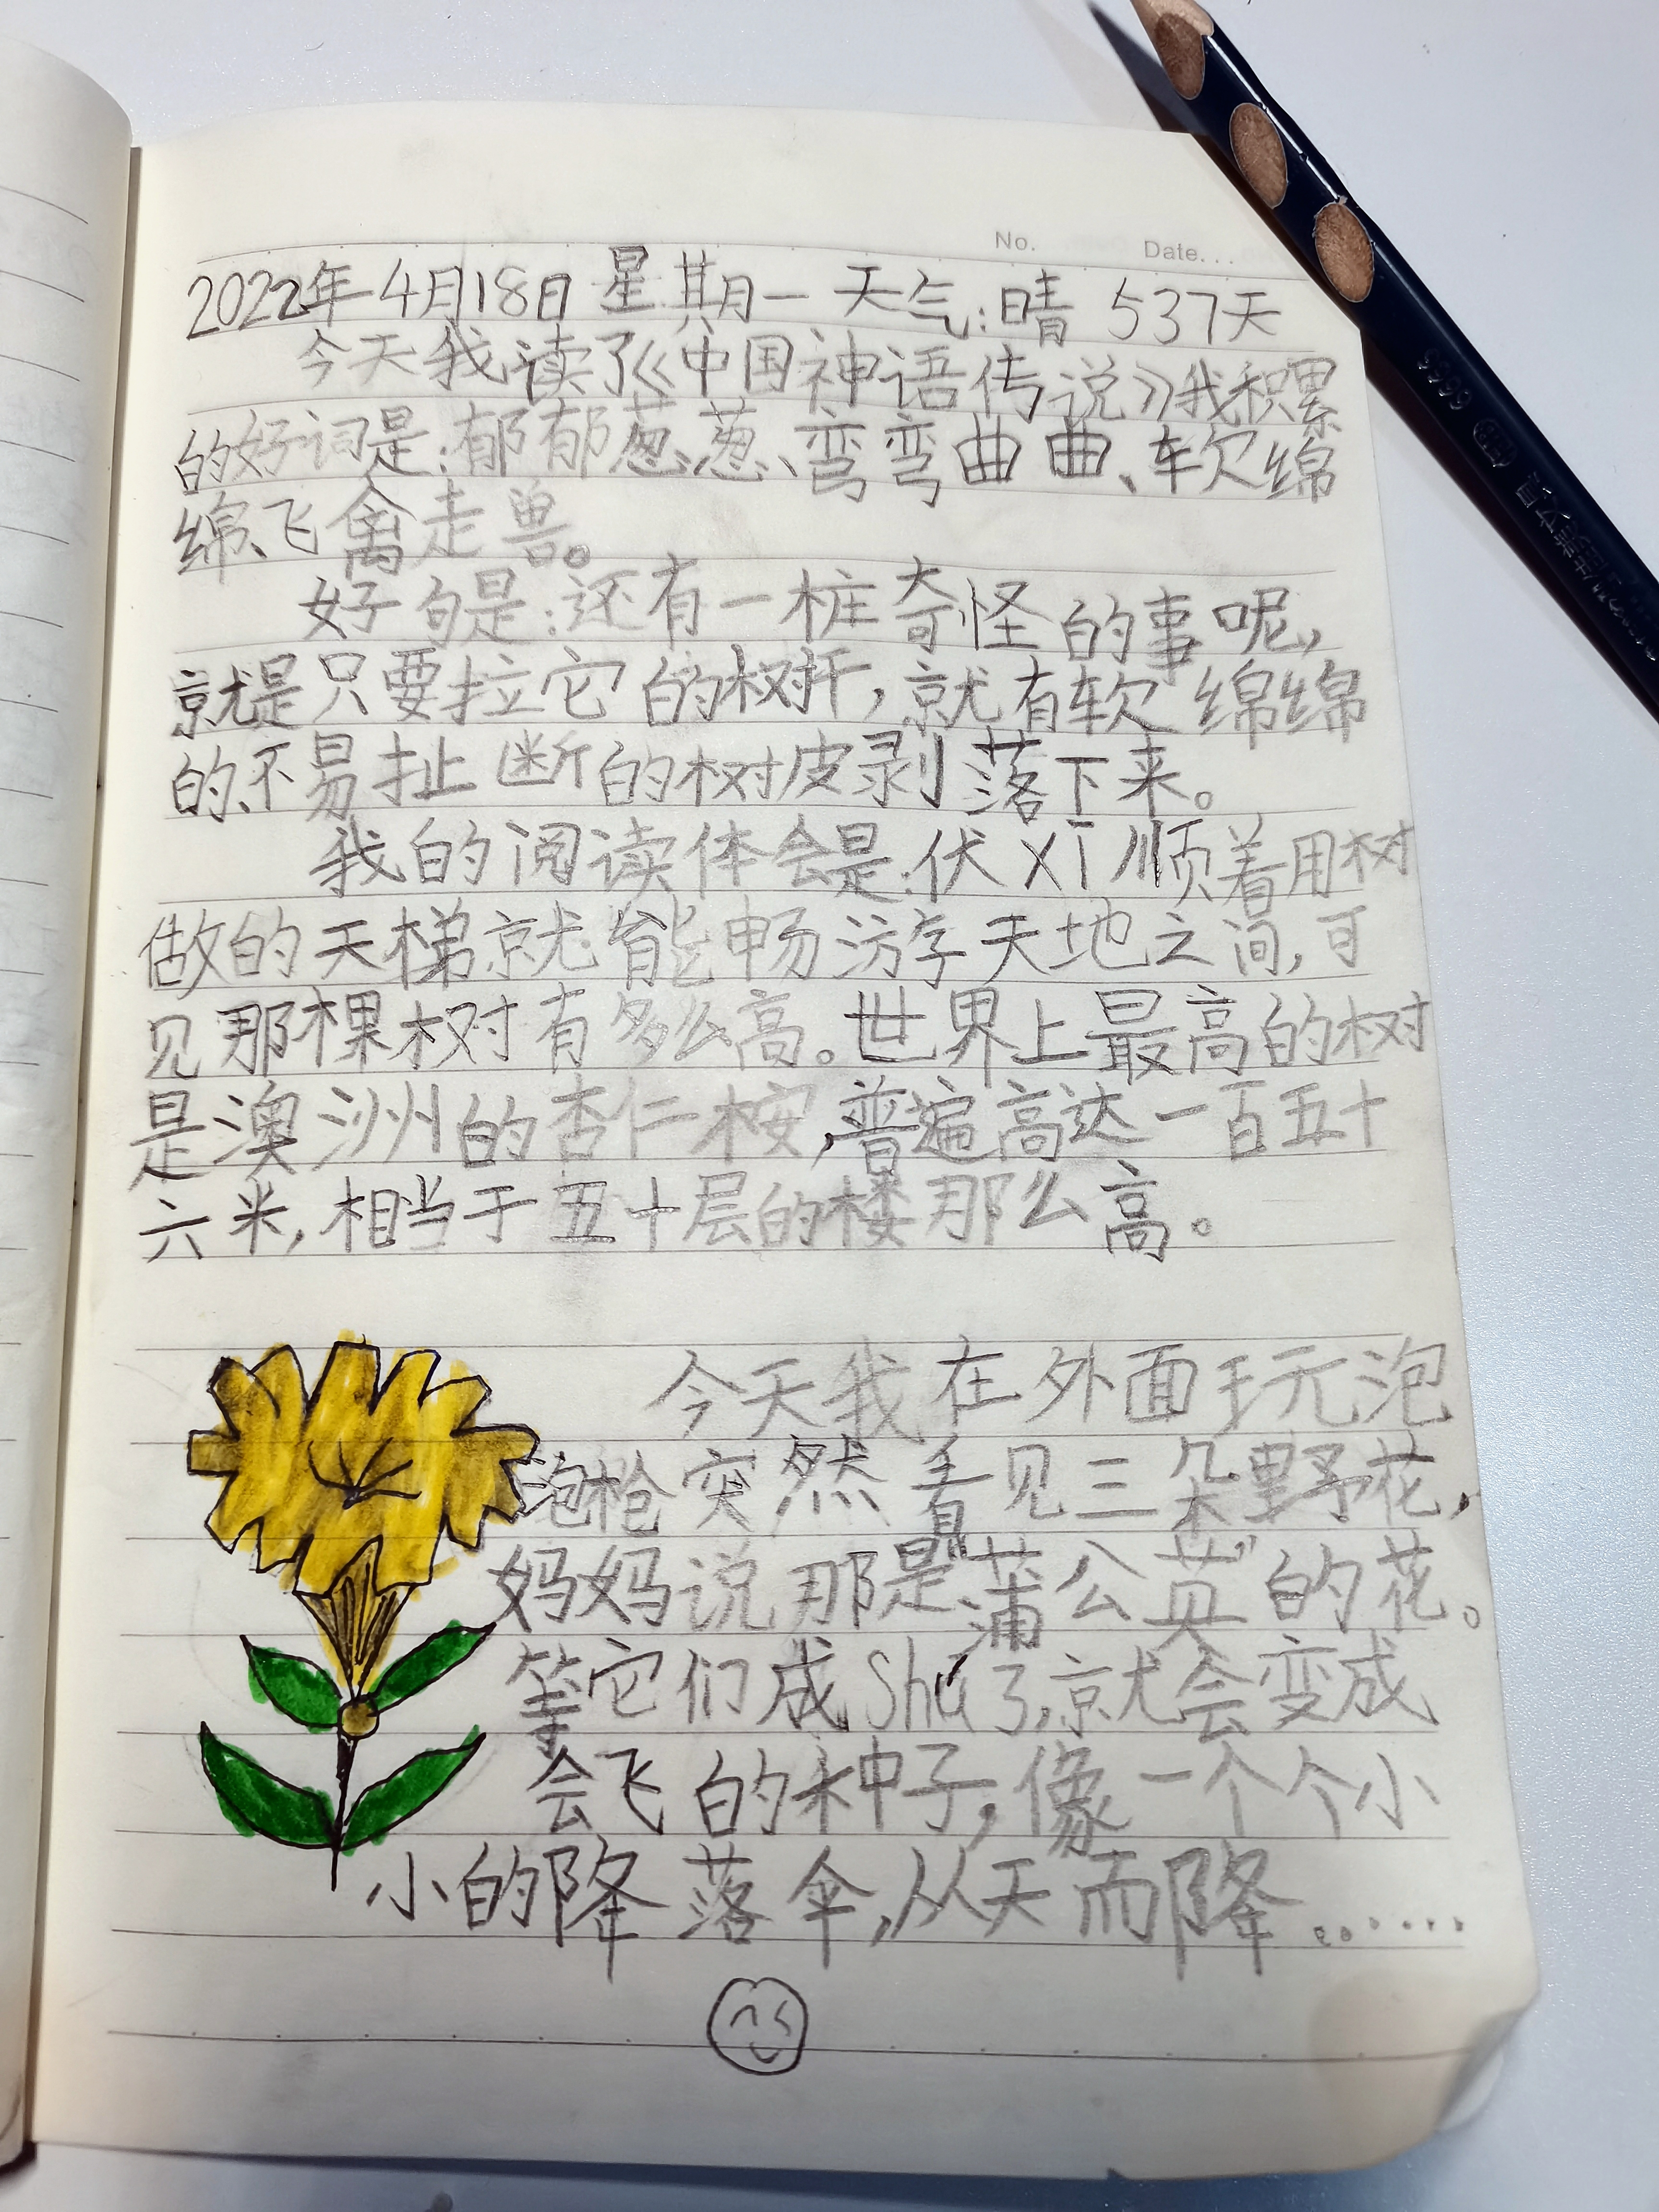 No. Date...
2022年4月18日 星期一 天气:晴 537天
今天我读了《中国神语传说》我积累
的好词是:郁郁葱葱、弯弯曲曲、软绵
绵、飞禽走兽。
好句是:还有一桩奇怪的事呢,
就是只要拉它的树扦,就有软绵绵
的、不易扯断的树皮剥落下来。
我的阅读体会是:伏XI顺着用树
做的天梯就能畅游于天地之间,可
见那棵树有多么高。世界上最高的树
是澳洲的杏仁桉,普遍高达一百五十
六米,相当于五十层的楼那么高。
今天我在外面玩泡
泡枪突然看见三朵野花,
妈妈说那是“蒲公英”的花。
等它们成Shú了,就会变成
会飞的种子,像一个个小
小的降落伞,从天而降……
6666